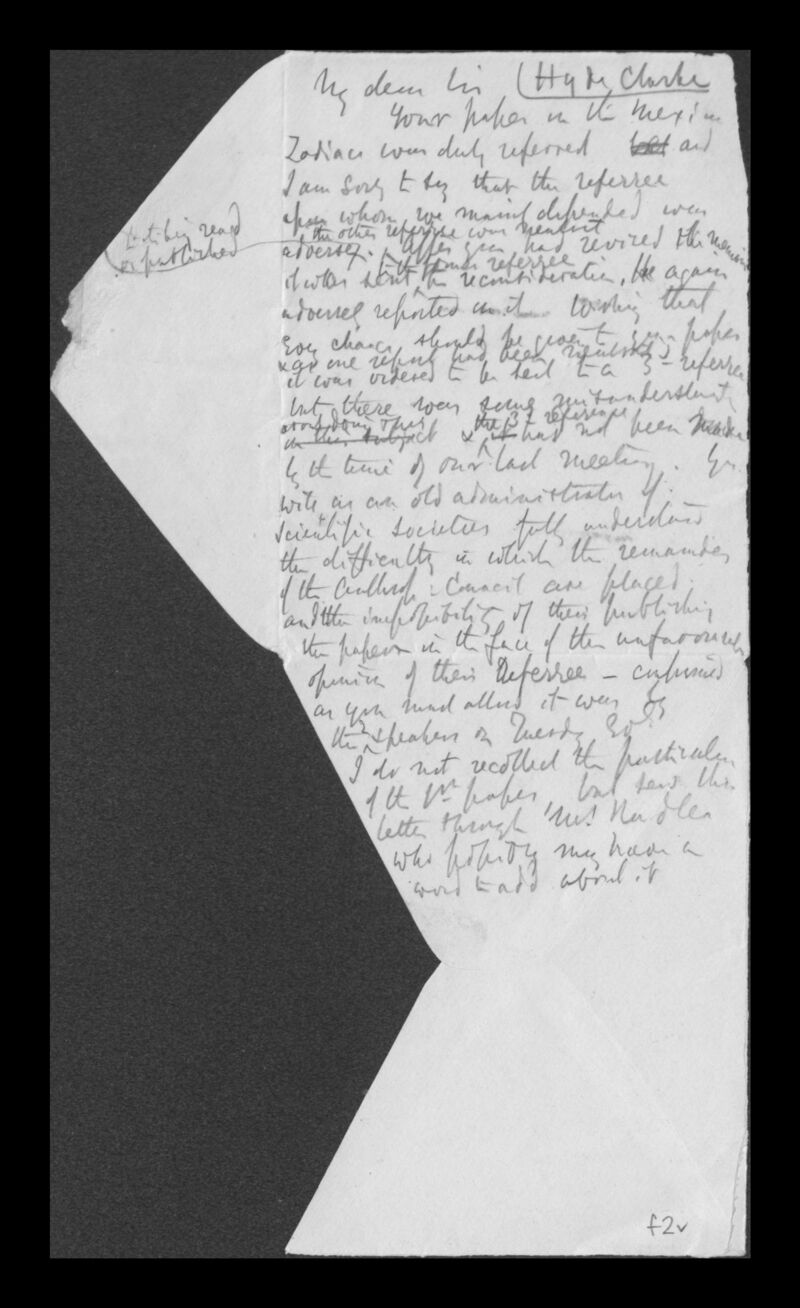 My dear Sir (Hyde Clarke
Your paper on the Mexican
Zodiac was duly referred but and
I am sorry to say that the referee
upon whom we mainly depended was
the other referee was neutral
to its being read
or published
adverse. After you had revised the memoir
to the former referee
it was sent for reconsideration. He again
adversely reported on it. Wishing that
every chance should be given to your paper
x as one report had been neutral
it was ordered to be sent to a 3rd referee
but there was some misunderstanding
in this subject x the 3rd reference
it had not been made
by the time of our last meeting. You
will as an old administrator of
scientific societies fully understand
the difficulty in which the remainder
of the Anthrop: Council are placed
and the impossibility of their publishing
the paper in the face of the unfavourable
opinion of their Referee – confirmed
as you must allow it was by
the 2 speakers on Tuesday Evg
I do not recollect the particulars
of the 1st paper, but send this
letter through
who possibly may have a
word to add about it
f2v